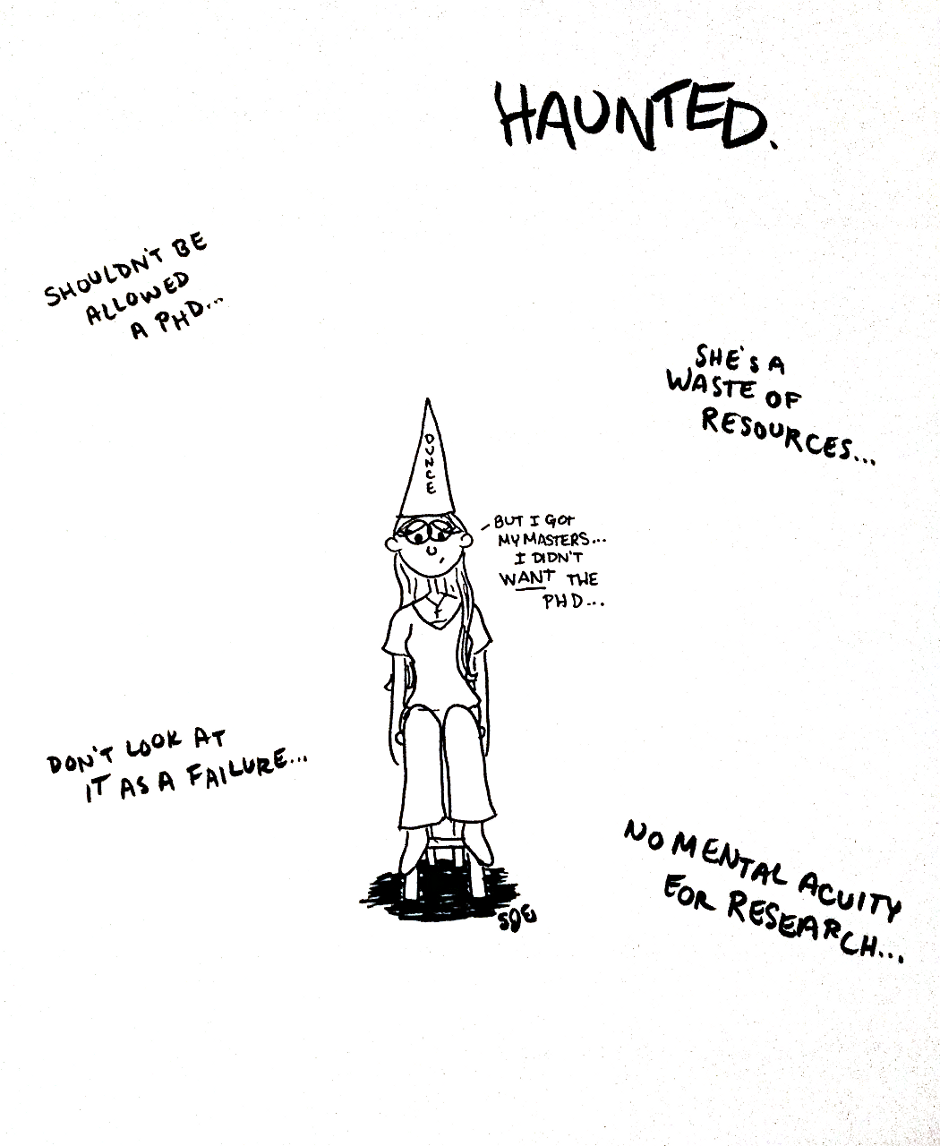 HAUNTED.
SHOULDN'T BE
ALLOWED
A PHD...
SHE'S A
WASTE OF
RESOURCES...
DUNCE
BUT I GOT
MY MASTERS...
I DIDN'T
WANT THE
PHD...
DON'T LOOK AT
IT AS A FAILURE...
NO MENTAL ACUITY
FOR RESEARCH...
SJE